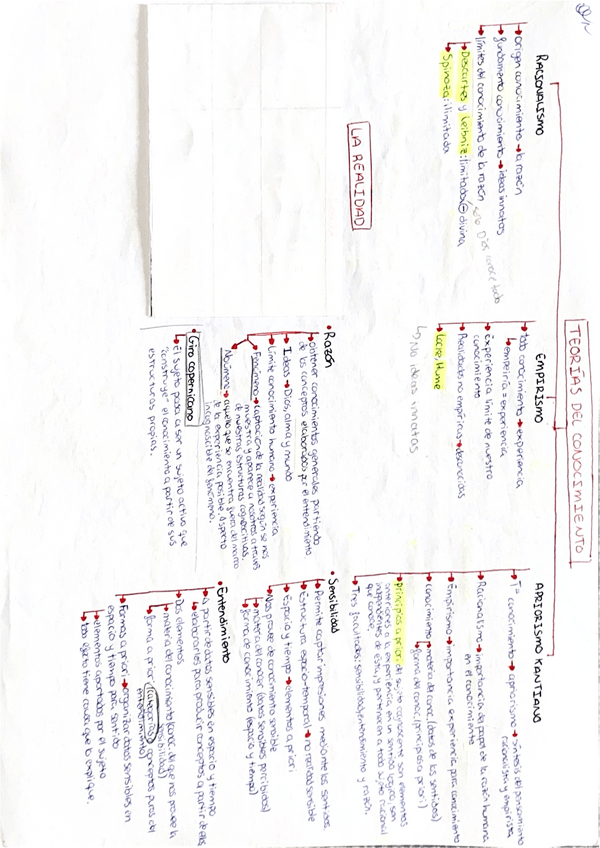 TEORÍAS DEL CONOCIMIENTO
RACIONALISMO
origen conocimiento → la razón
fundamento conocimiento → ideas innatas
límites del conocimiento de la razón
solo Dios conoce todo
Descartes y Leibniz: limitada divina
Spinoza: ilimitada
EMPIRISMO
todo conocimiento → experiencia
empeiría = experiencia
Experiencia límite de nuestro
conocimiento
Realidades no empíricas → desconocidas
Locke, Hume
No ideas innatas
APRIORISMO KANTIANO
Tª conocimiento → apriorismo → síntesis del pensamiento
racionalista y empirista
Racionalismo → importancia del papel de la razón humana
en el conocimiento
Empirismo → importancia experiencia para conocimiento
conocimiento materia del conoc. (datos de los sentidos)
forma del conoc. (principios a priori)
principios a priori del sujeto cognoscente son elementos
anteriores a la experiencia en un sentido lógico, son
independientes de esta, y pertenecen a todo sujeto racional
que conoce
Tres facultades: sensibilidad, entendimiento y razón.
LA REALIDAD
Razón
obtener conocimientos generales partiendo
de los conceptos elaborados por el entendimiento
Ideas → Dios, alma y mundo
Límite conocimiento humano → experiencia
Fenómeno → captación de la realidad según se nos
muestra y aparece a nosotros a través
de nuestras estructuras cognoscitivas.
Noúmeno → aquello que se encuentra fuera del marco
de la experiencia posible. Aspecto
incognoscible del fenómeno.
Giro copernicano
El sujeto pasa a ser un sujeto activo que
"construye" el conocimiento a partir de sus
estructuras propias.
Sensibilidad
Permite captar impresiones mediante los sentidos.
Estructura espacio-temporal → no realidad sensible
Espacio y tiempo → elementos a priori
Nos provee de conocimiento sensible
materia del conoc. (datos sensibles percibidos)
forma de conocimiento (espacio y tiempo)
Entendimiento
A partir de datos sensibles en espacio y tiempo
elaborarles para producir conceptos a partir de ellos
Dos elementos
materia del conocimiento (conoc. del que nos provee la
sensibilidad)
forma a priori (categorías) conceptos puros del
entendimiento
Formas a priori → organizar datos sensibles en
espacio y tiempo para sentido
elementos aportados por el sujeto
todo efecto tiene causa que lo explique.